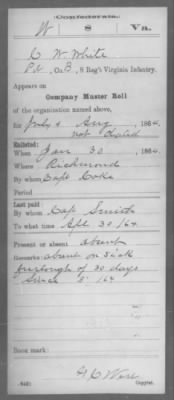 Confederate.
W 8 Va.
C W White
Pvt, Co. B, 8 Reg't Virginia Infantry.
Appears on
Company Muster Roll
of the organization named above,
for July & Aug, 1864.
not dated
Enlisted:
When Jan 30, 1864.
Where Richmond
By whom Capt Coke
Period
Last paid:
By whom Capt Smith
To what time Apl 30/64
Present or absent absent
Remarks: absent on sick
furlough of 30 days
since
Book mark:
Copyist.